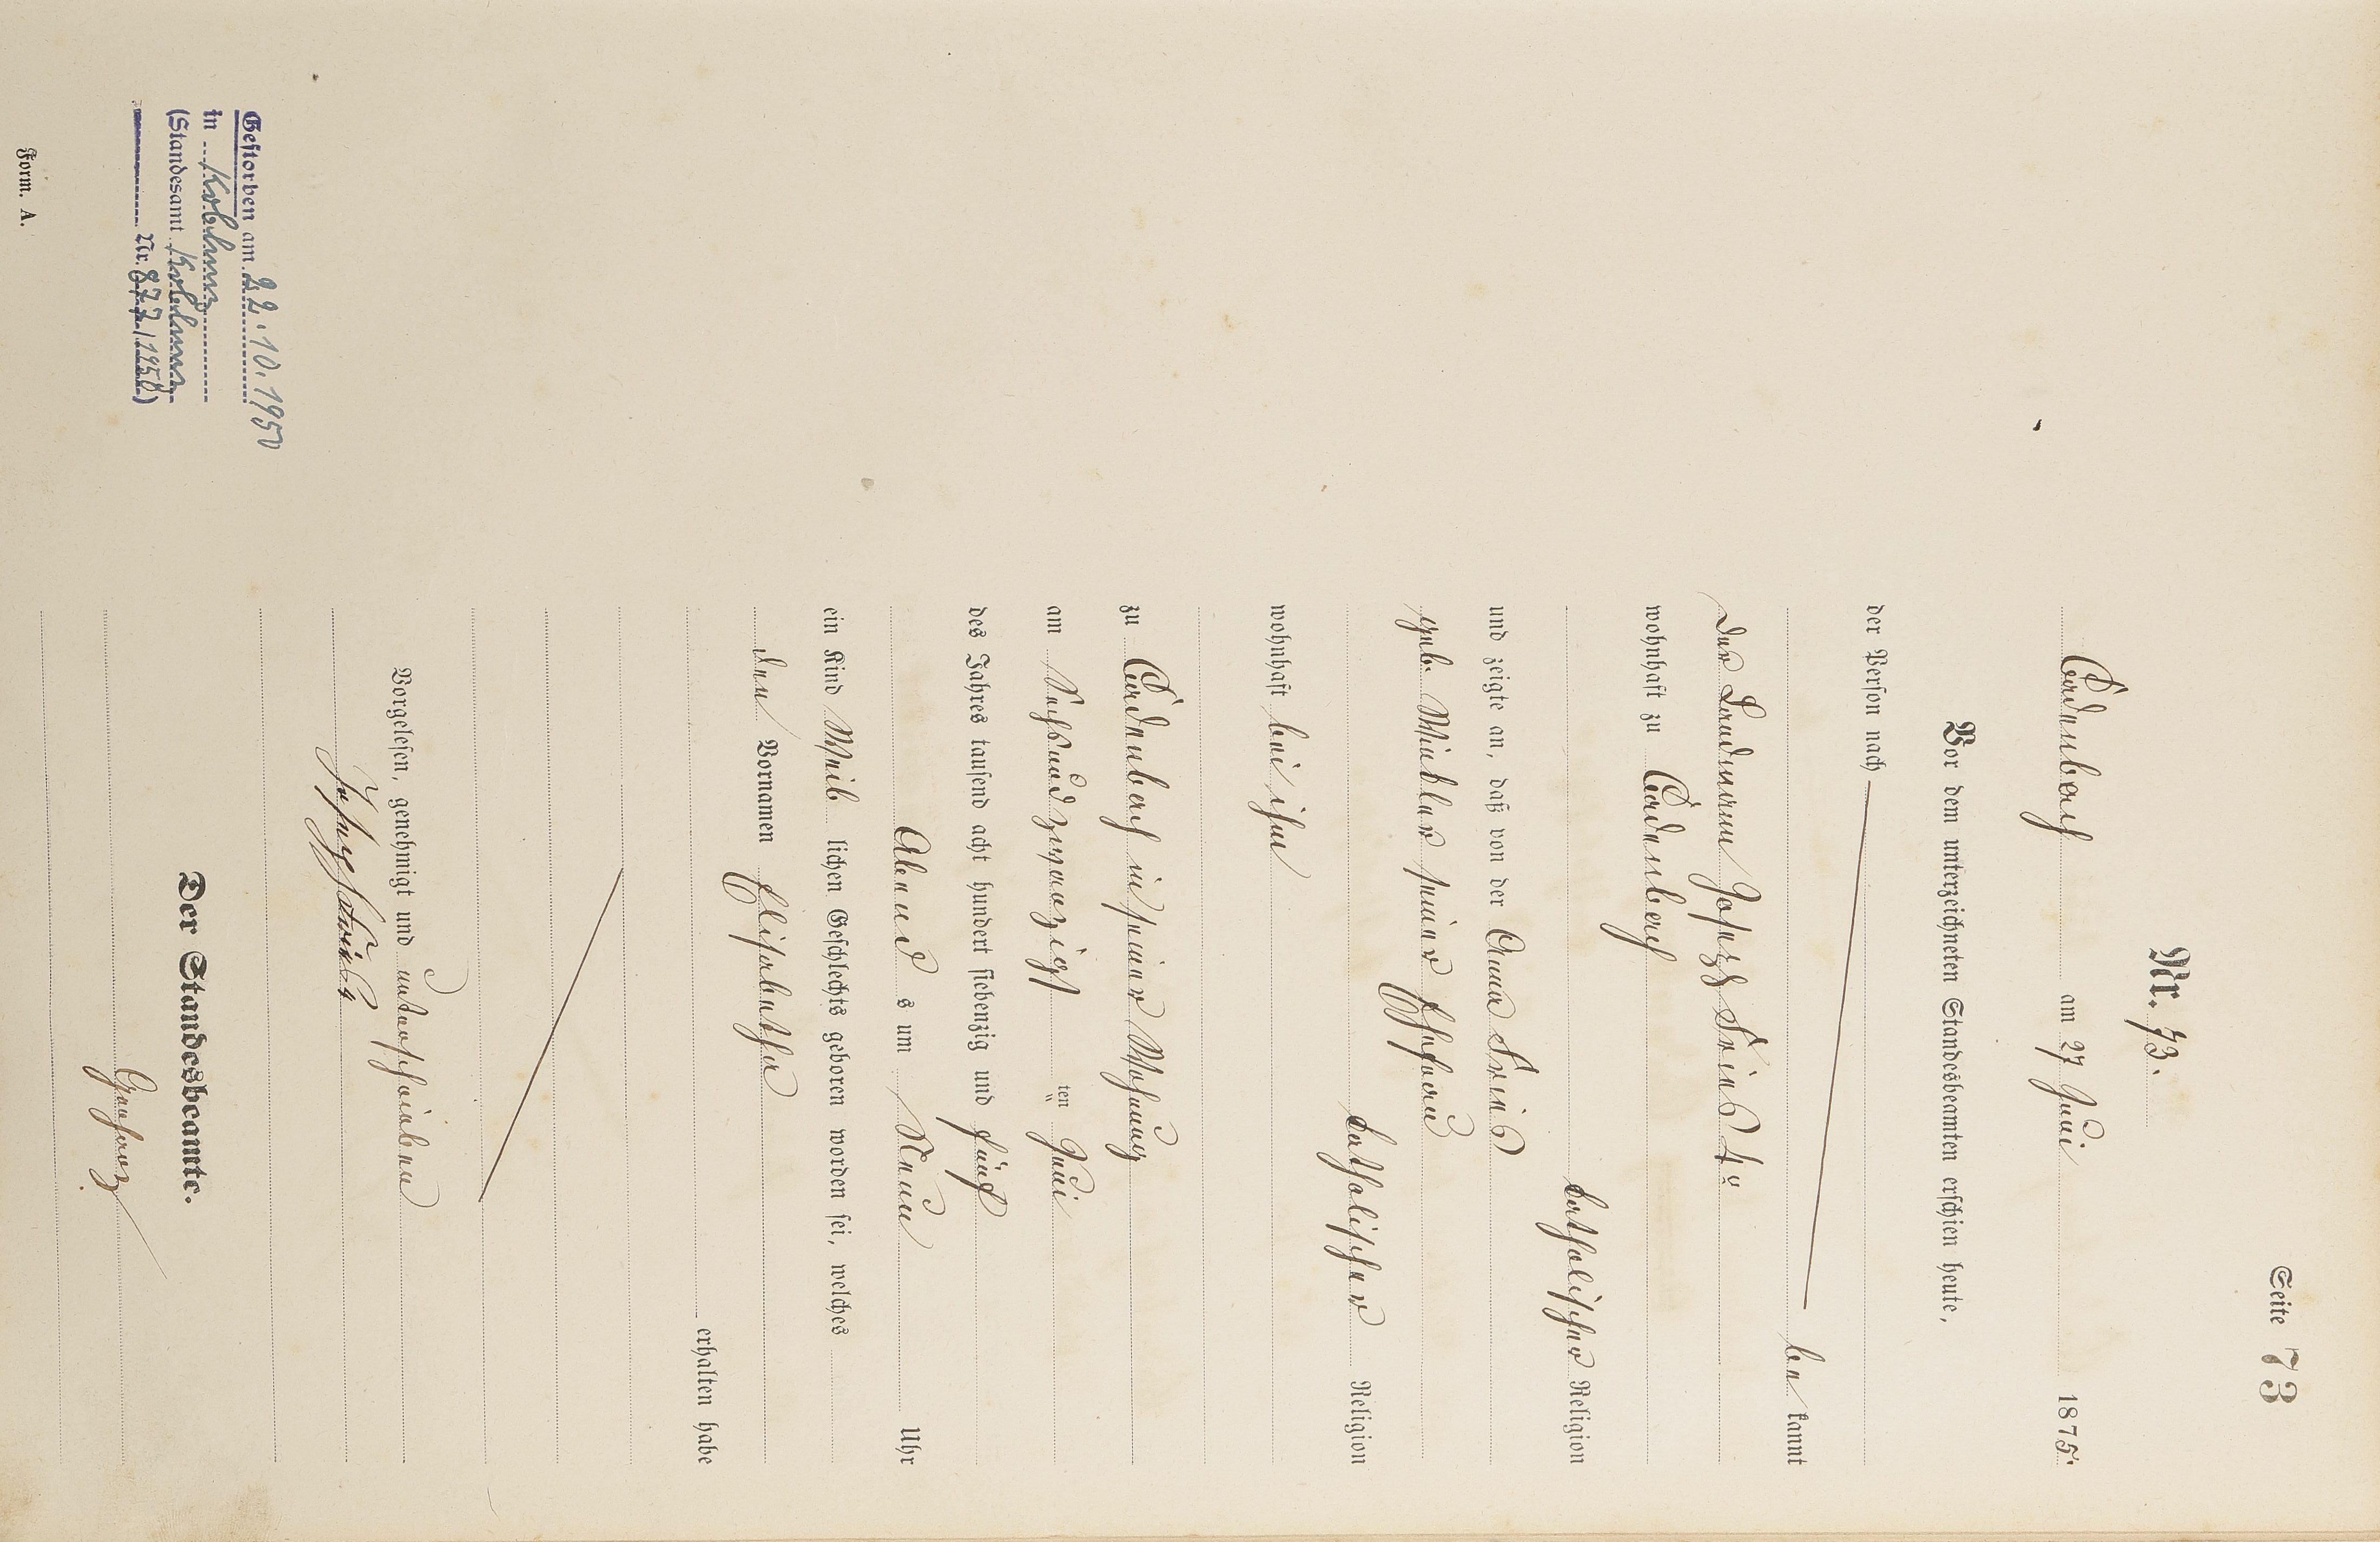 Seite 73
Nr. 73.
Cadenbach am 27 Juni 1875.
Vor dem unterzeichneten Standesbeamten erschien heute,
der Person nach
be kannt
der Landmann Joseph Dries 4r
wohnhaft zu Cadenbach
katholischer Religion
und zeigte an, daß von der Anna Dries
geb. Winkler seiner Ehefrau
katholischer Religion
wohnhaft bei ihm
zu Cadenbach in seiner Wohnung
am Sechsundzwanzigst ten Juni
des Jahres tausend acht hundert siebenzig und fünf
Abend s um Neun Uhr
ein Kind Weib lichen Geschlechts geboren worden sei, welches
den Vornamen Elisabetha
erhalten habe
Vorgelesen, genehmigt und unterschrieben
Der Standesbeamte.
Gestorben am 22.10.1950
in Koblenz
(Standesamt Koblenz
Nr. 877/1950)
Form. A.